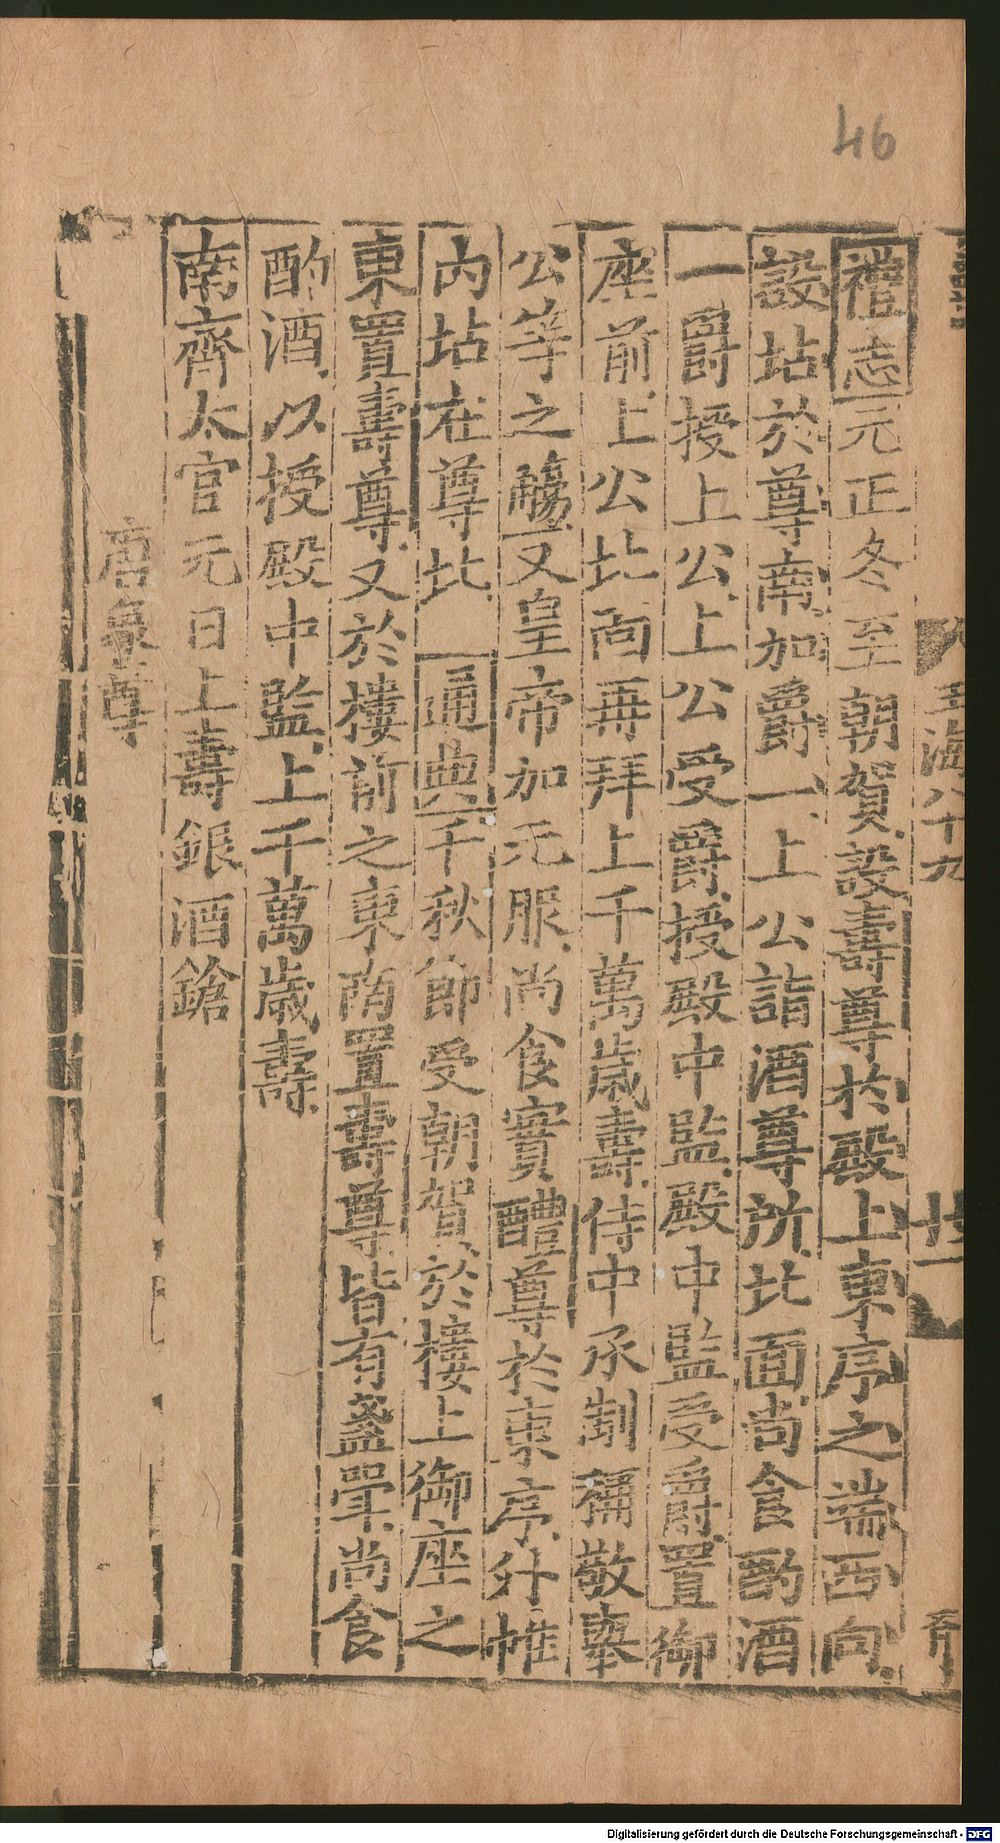 46
玉海八十九
禮志元正冬至朝賀設壽尊於殿上東序之端西向
設坫於尊南加爵一上公詣酒尊所北面尚食酌酒
一爵授上公上公受爵授殿中監殿中監受爵置御
座前上公北向再拜上千萬歲壽侍中承制稱敬舉
公等之觴又皇帝加元服尚食實醴尊於東序外帷
內坫在尊北 通典千秋節受朝賀於樓上御座之
東置壽尊又於樓前之東南置壽尊皆有盞罩尚食
酌酒以授殿中監上千萬歲壽
南齊太官元日上壽銀酒鎗
唐象尊
Digitalisierung gefördert durch die Deutsche Forschungsgemeinschaft - DFG